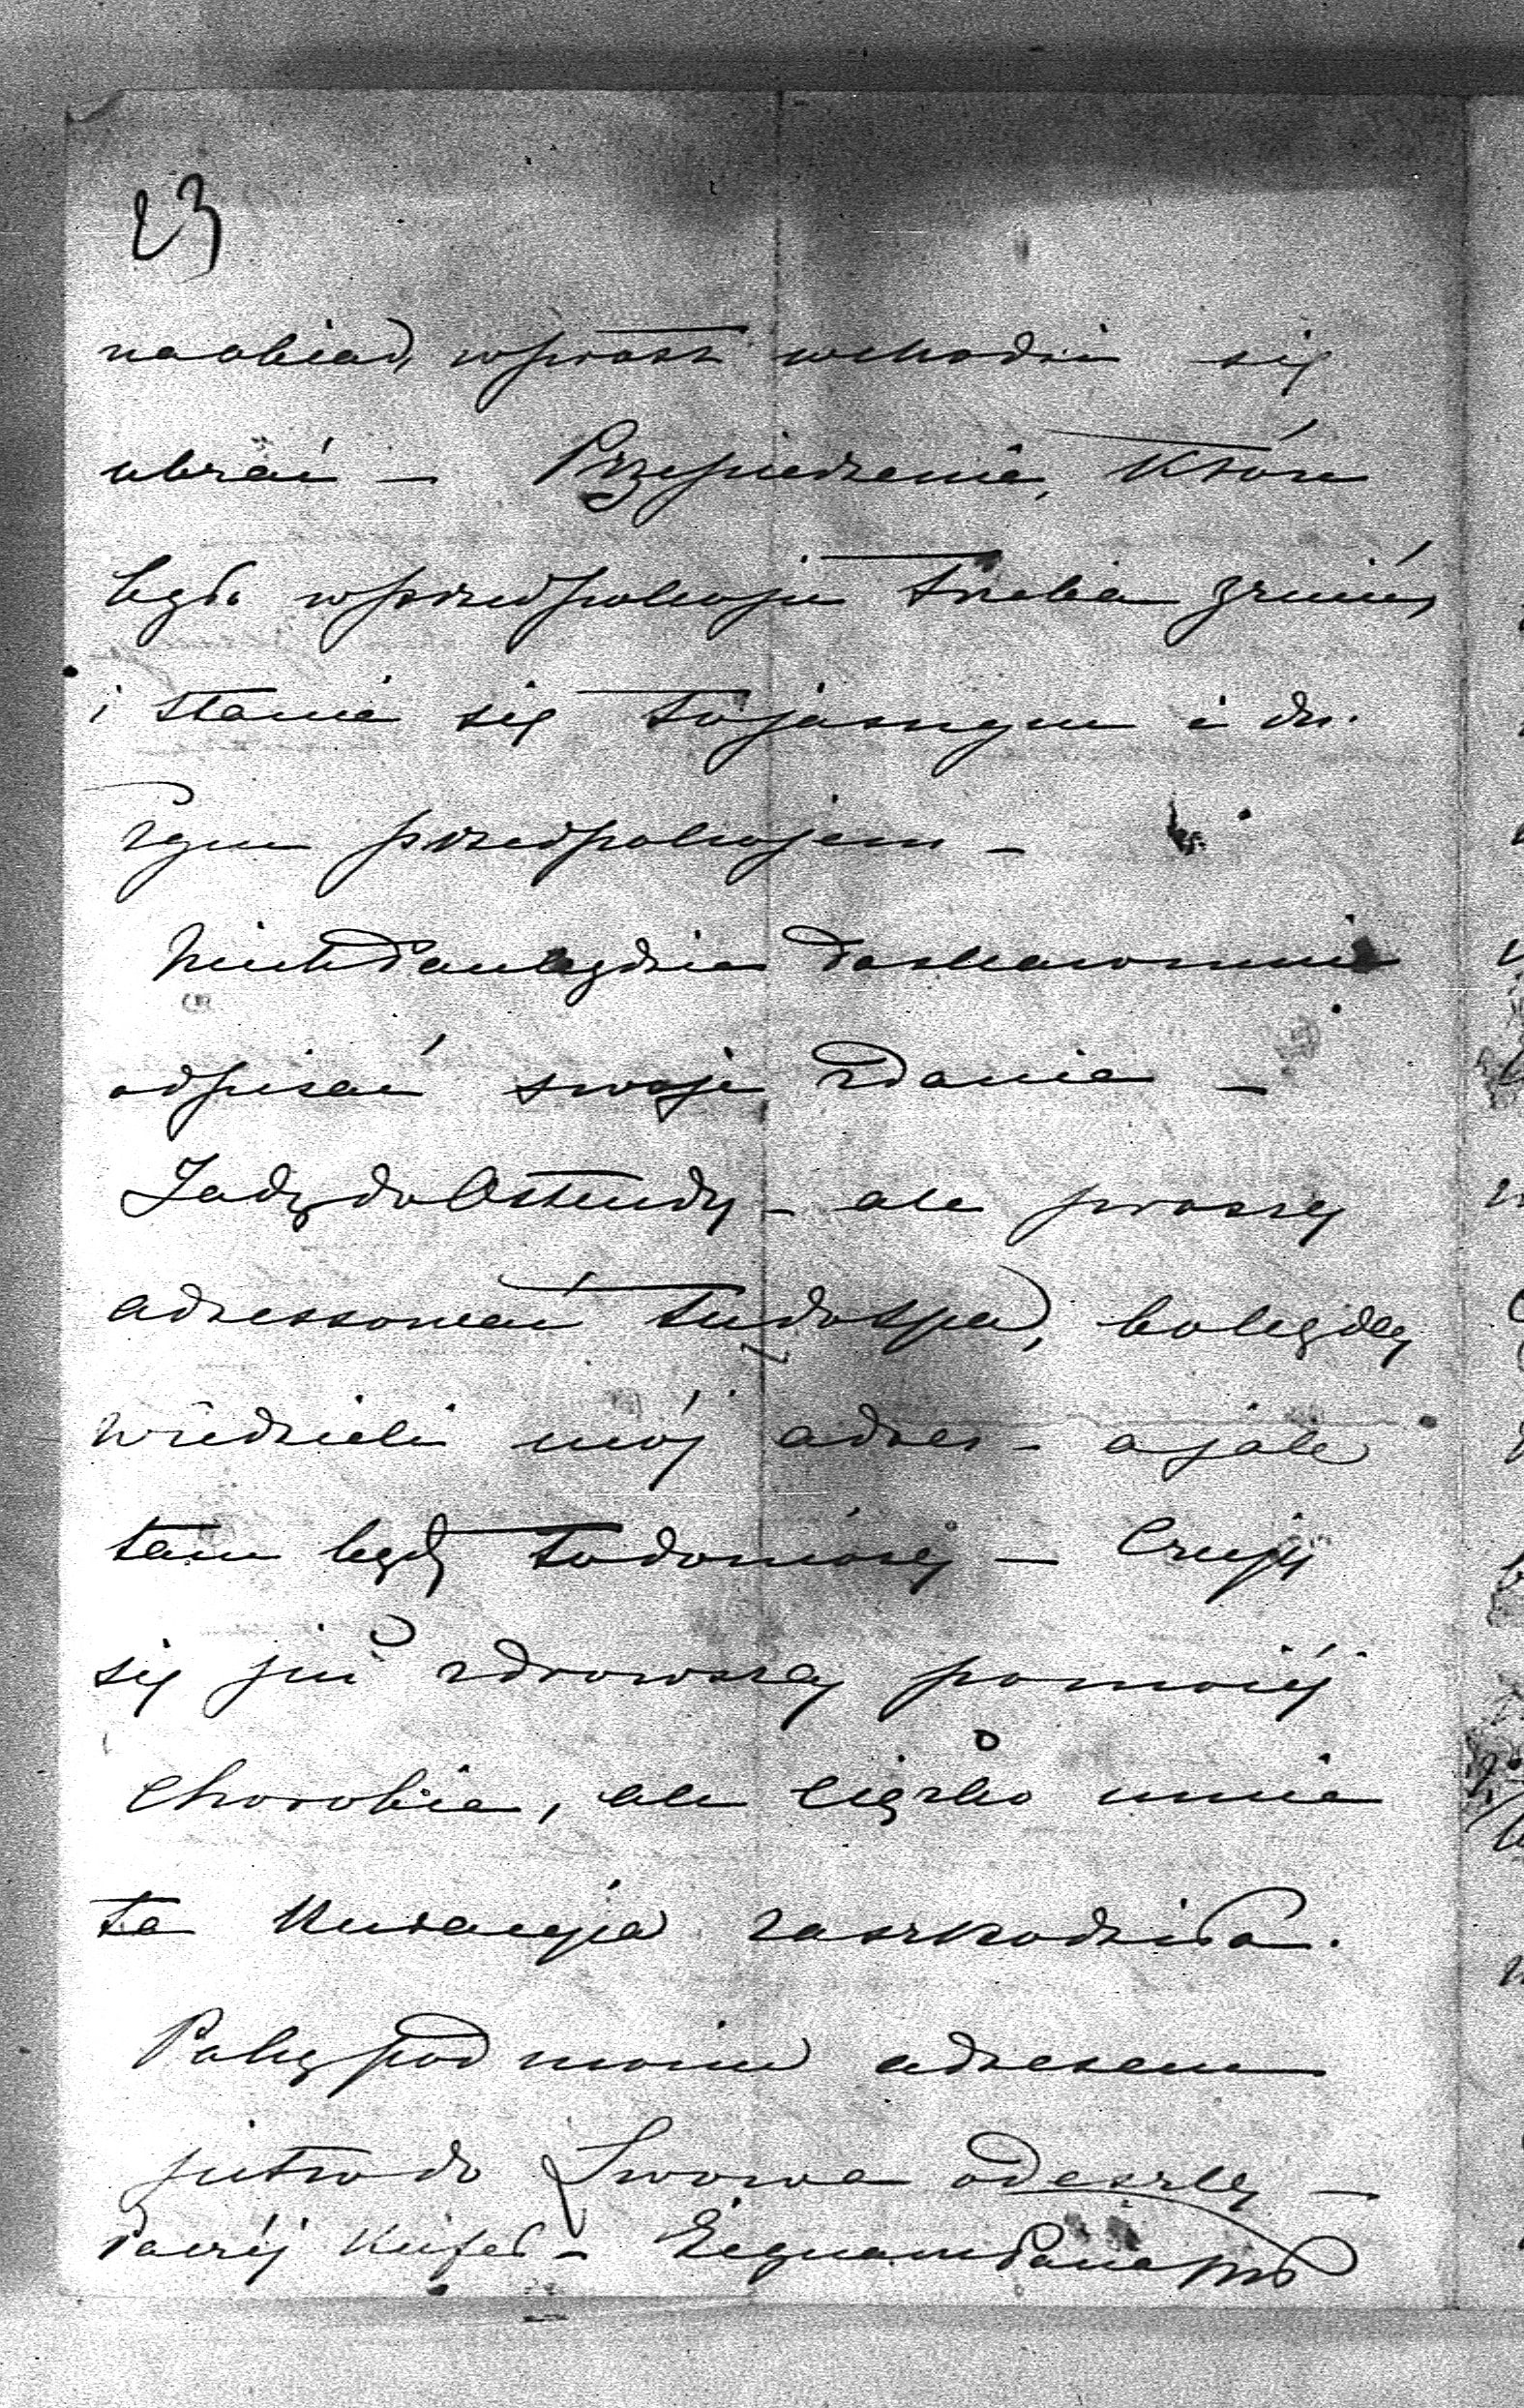 23
na obiad, wprost wchodzi się
ubrać – Przepierzenie, które
było w przedpokoju trzeba znieść
i stanie się to jasnym i du-
żym przedpokojem –
Niech Pan będzie łaskaw mnie
odpisać swoje zdanie –
Jadę do Ostendy – ale proszę
adressować tu do Spa, bo będą
wiedzieli mój adres – a jak
tam będę to doniosę – Czuję
się już zdrowszą po mojéj
chorobie, ale ciężko mnie
ta kuracyja zaszkodziła.
Pakę pod moim adresem
jutro do Lwowa odeszlę –
Żegnam Pana